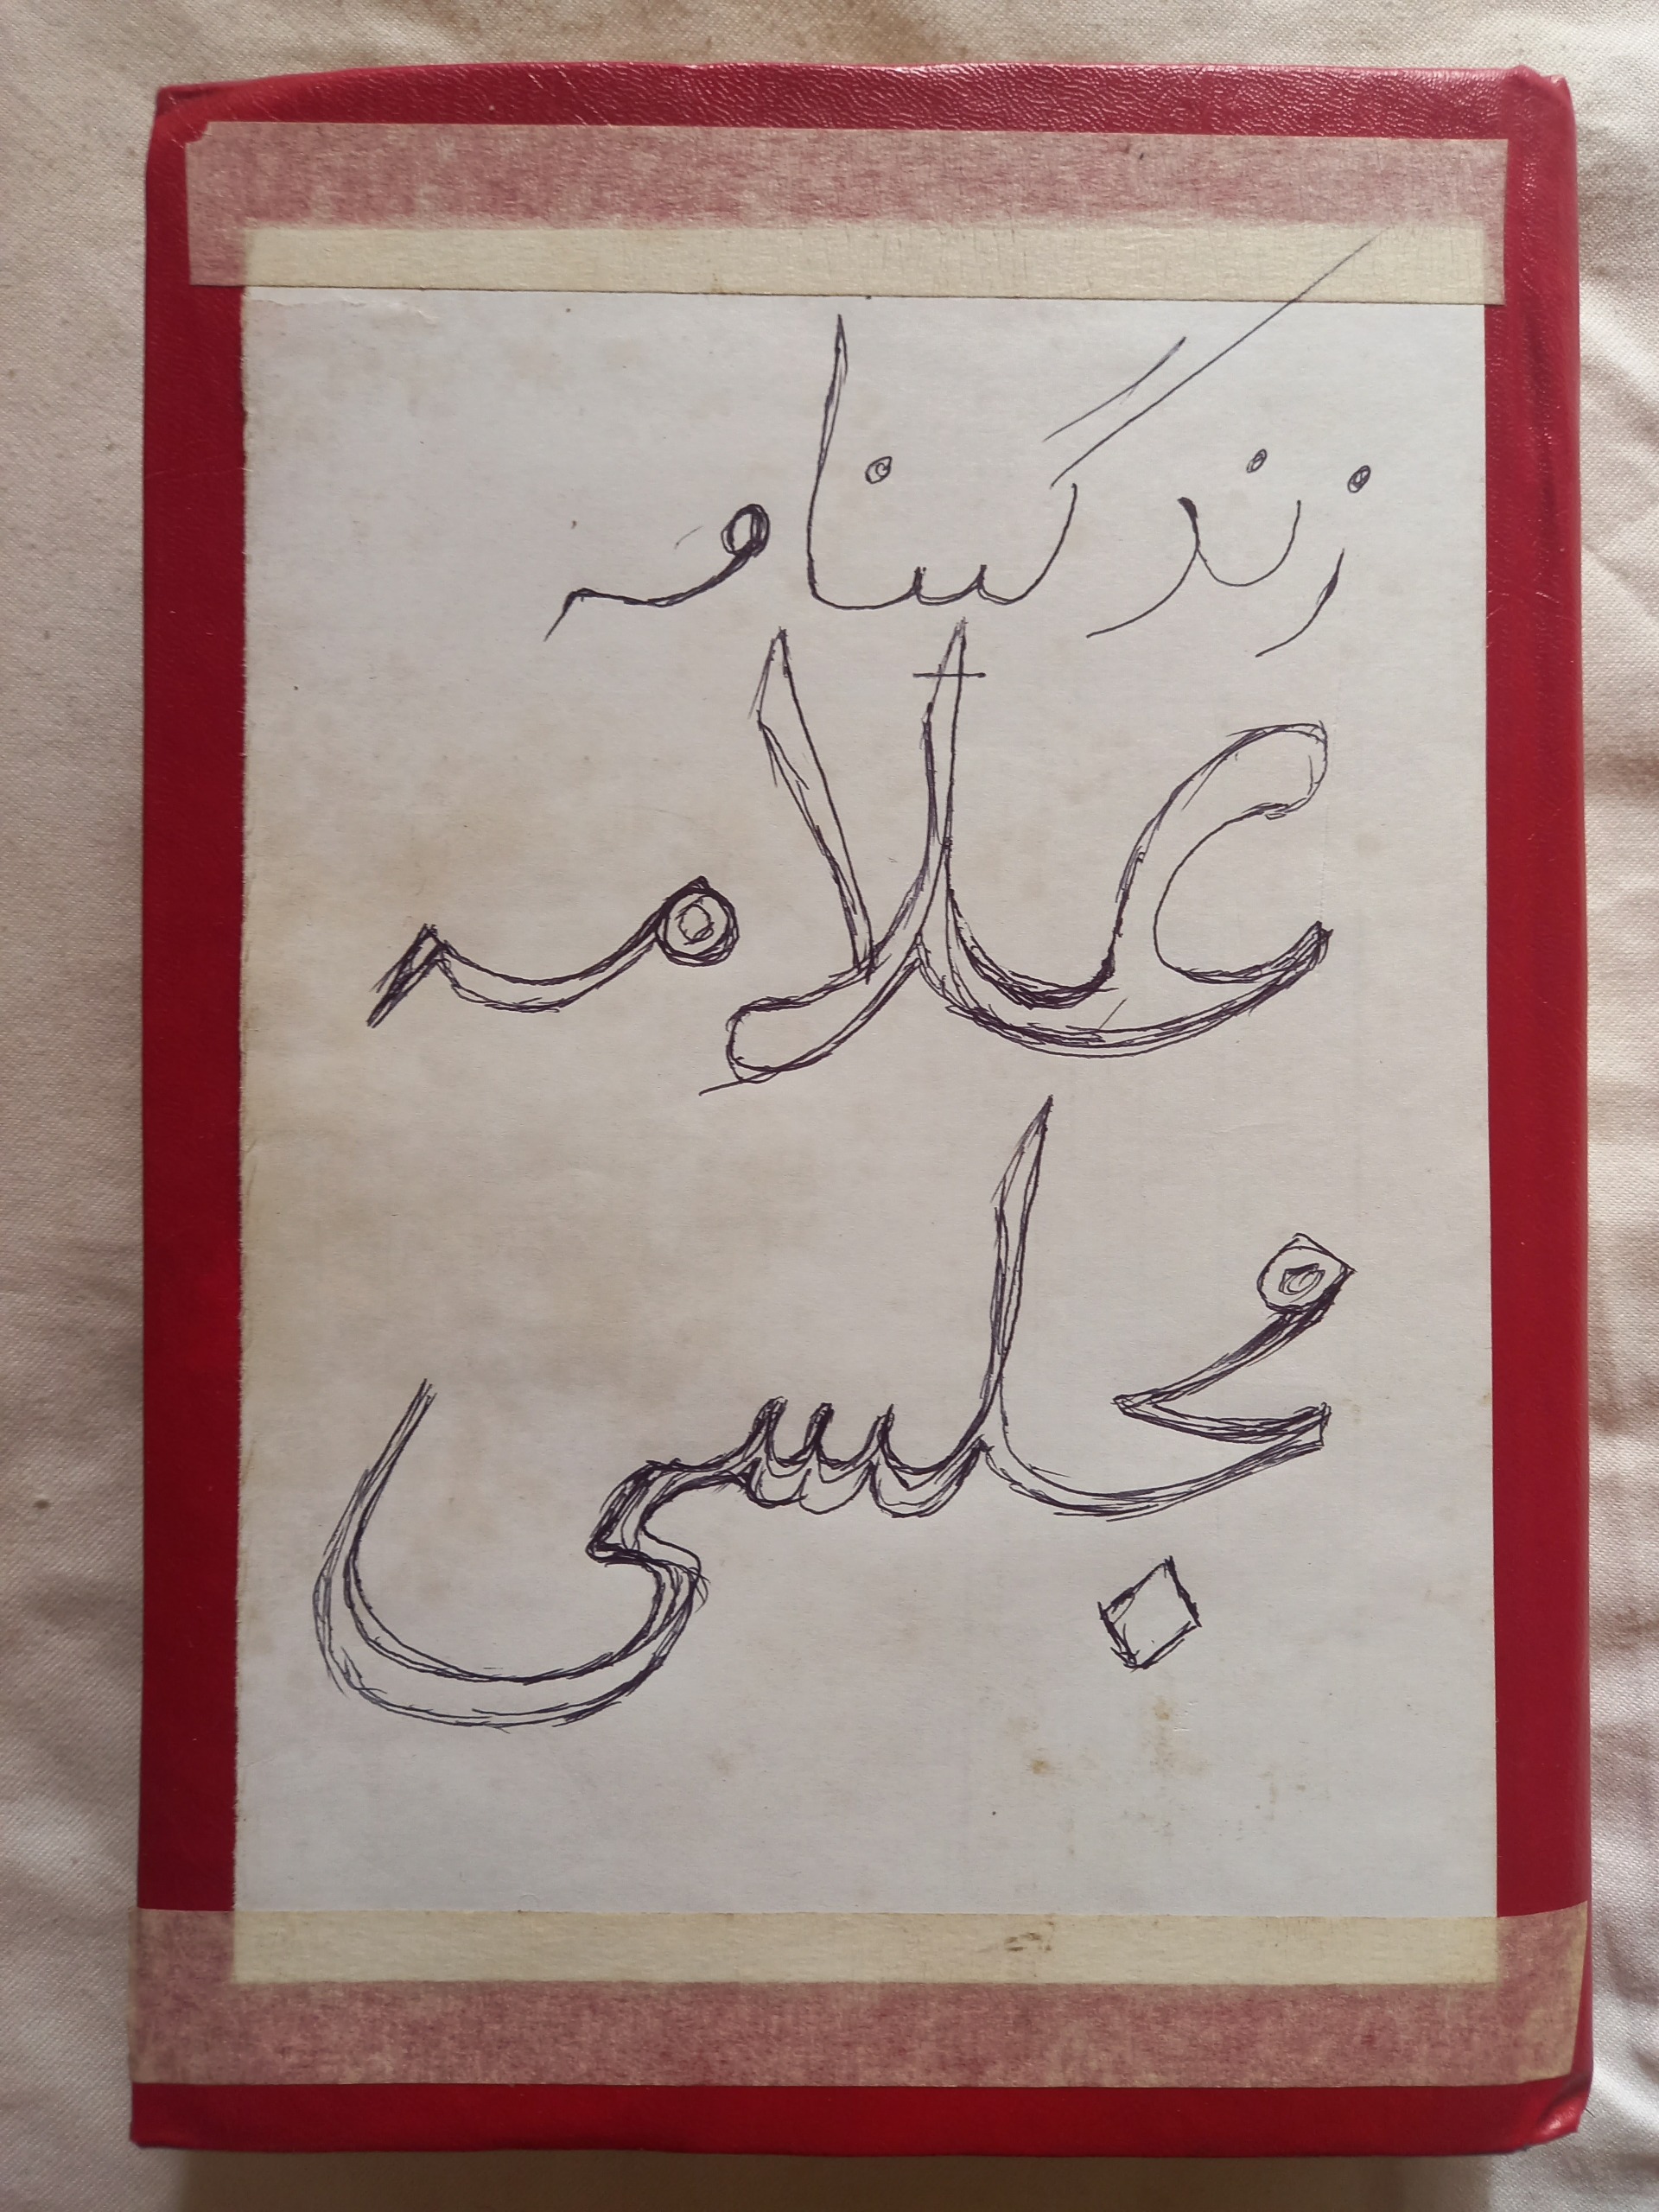 زندگینامه
علامه
مجلسی